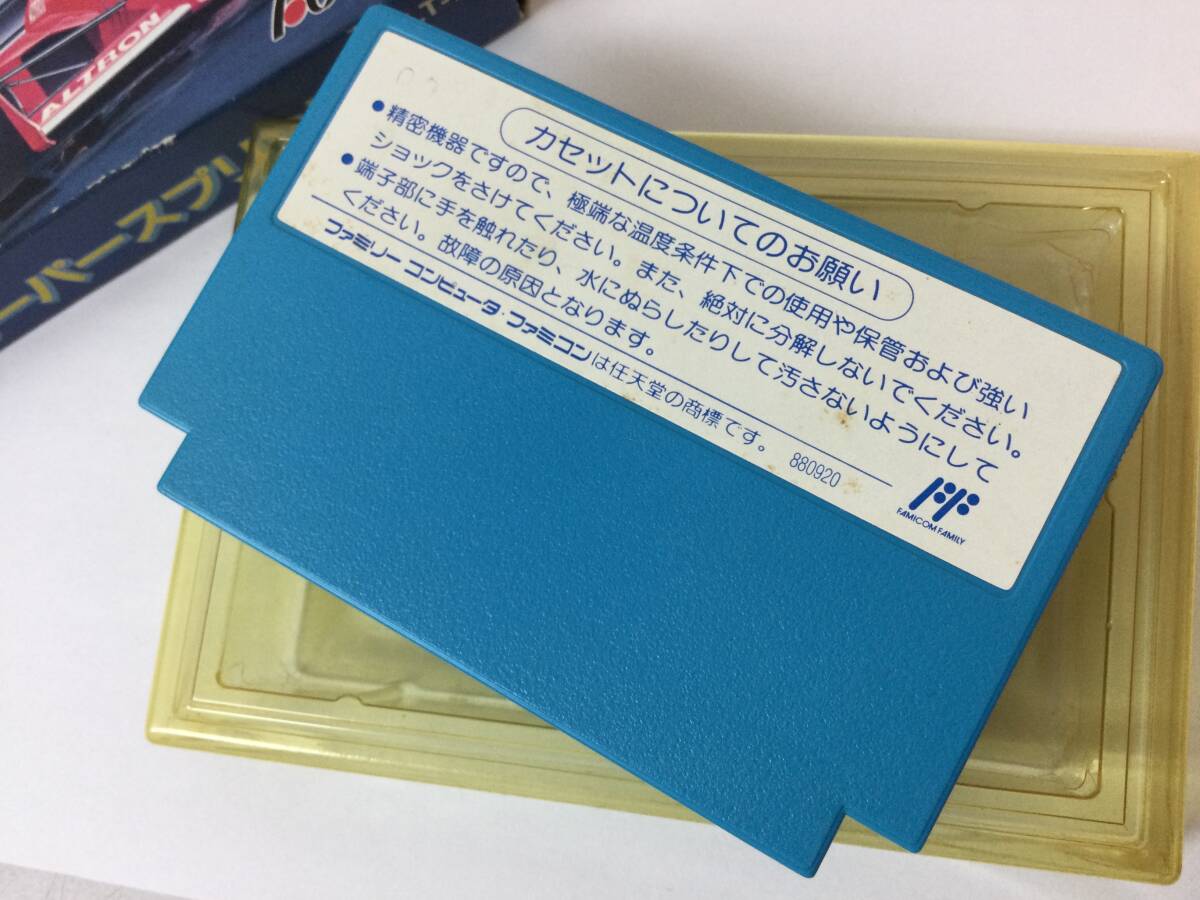 ALTRON
ーパースプリ
カセットについてのお願い
●精密機器ですので、極端な温度条件下での使用や保管および強い
ショックをさけてください。また、絶対に分解しないでください。
●端子部に手を触れたり、水にぬらしたりして汚さないようにして
ください。故障の原因となります。
ファミリーコンピュータ・ファミコンは任天堂の商標です。 880920
FAMICOM FAMILY